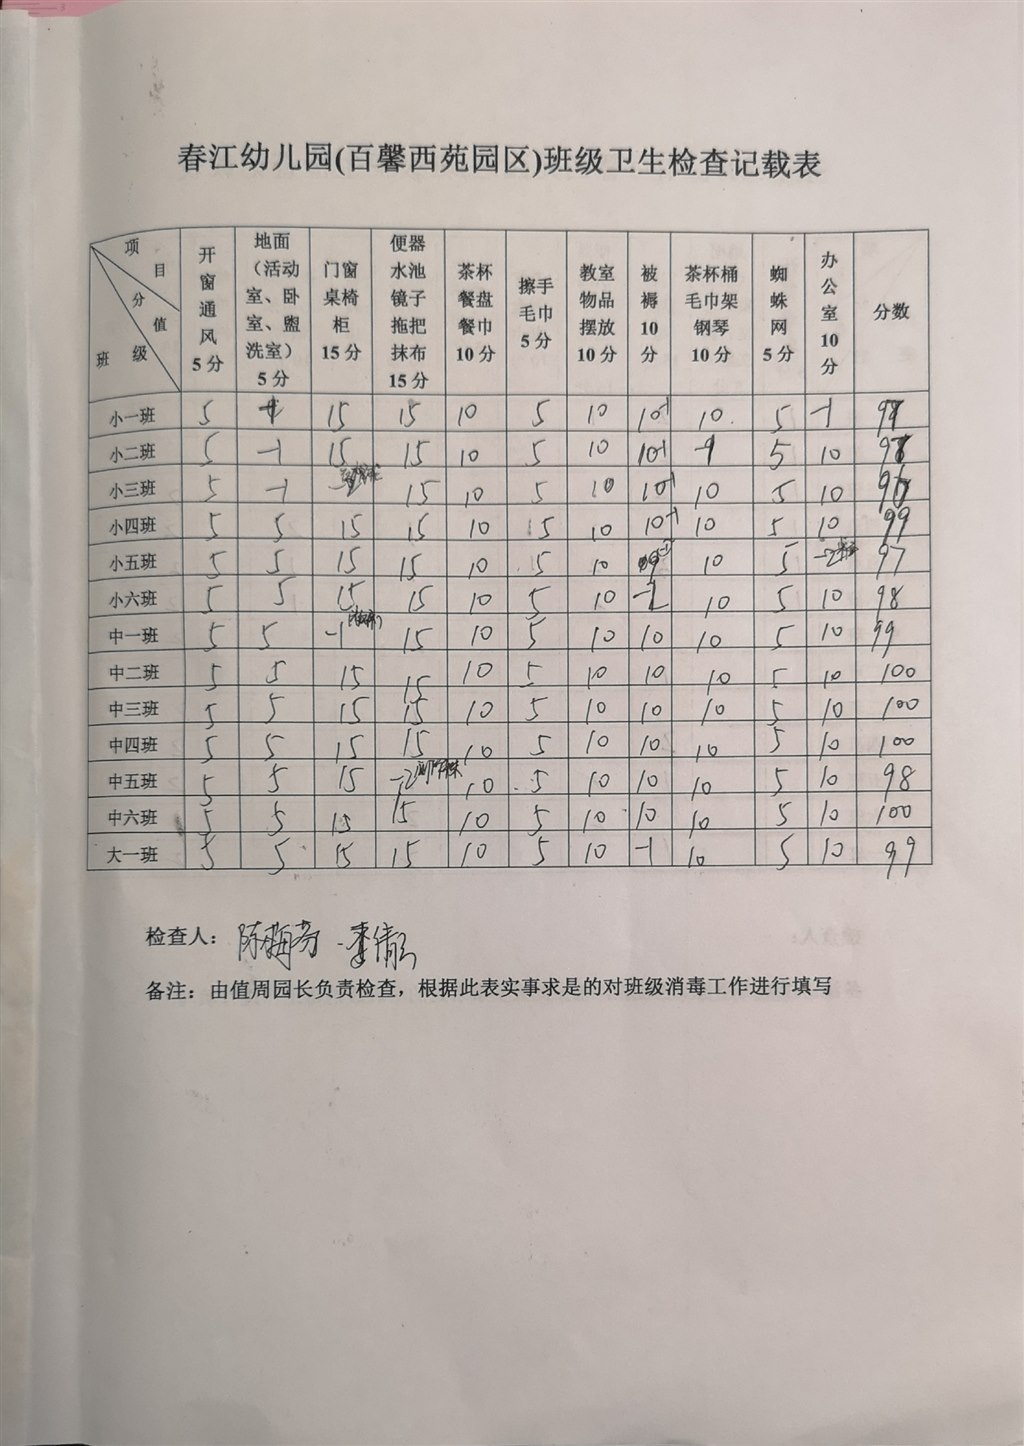 春江幼儿园(百馨西苑园区)班级卫生检查记载表
项目 分值 班级 开窗通风5分 地面（活动室、卧室、盥洗室）5分 门窗桌椅柜15分 便器水池镜子拖把抹布15分 茶杯餐盘餐巾10分 擦手毛巾5分 教室物品摆放10分 被褥10分 茶杯桶毛巾架钢琴10分 蜘蛛网5分 办公室10分 分数
小一班 5 15 15 10 5 10 10-1 10 5 -1
小二班 5 -1 15 15 10 5 10 10-1 -1 5 10
小三班 5 -1 -2 15 10 5 10 10-1 10 5 10
小四班 5 5 15 15 10 5 10 10-1 10 5 10 99
小五班 5 5 15 15 10 5 10 10 5 -2 97
小六班 5 5 15 15 10 5 10 -2 10 5 10 98
中一班 5 5 -1 15 10 5 10 10 10 5 10 99
中二班 5 5 15 15 10 5 10 10 10 5 10 100
中三班 5 5 15 15 10 5 10 10 10 5 10 100
中四班 5 5 15 15 10 5 10 10 10 5 10 100
中五班 5 5 15 -2 10 5 10 10 10 5 10 98
中六班 5 5 15 15 10 5 10 10 10 5 10 100
大一班 5 5 15 15 10 5 10 -1 10 5 10 99
检查人：陈梅芬 李倩
备注：由值周园长负责检查，根据此表实事求是的对班级消毒工作进行填写